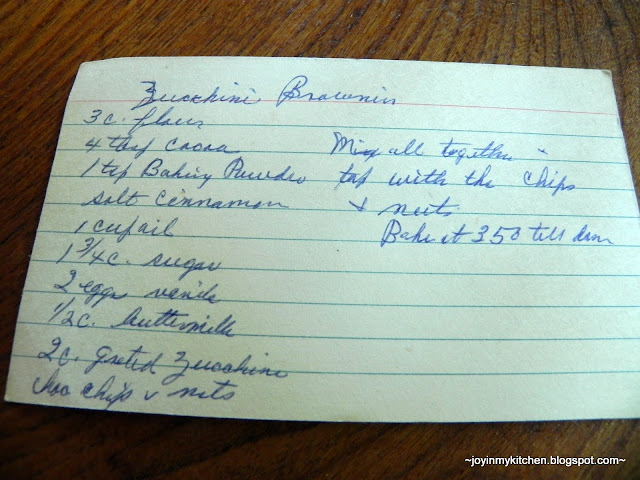 Zucchini Brownies
3 c. flour
4 tbsp cocoa
1 tsp Baking Powder
salt cinnamon
1 cup oil
1 3/4 c. sugar
2 eggs vanila
1/2 c. buttermilk
2 c. grated Zucchini
choc chips & nuts
Mix all together -
top with the chips
& nuts
Bake at 350 till done
~joyinmykitchen.blogspot.com~